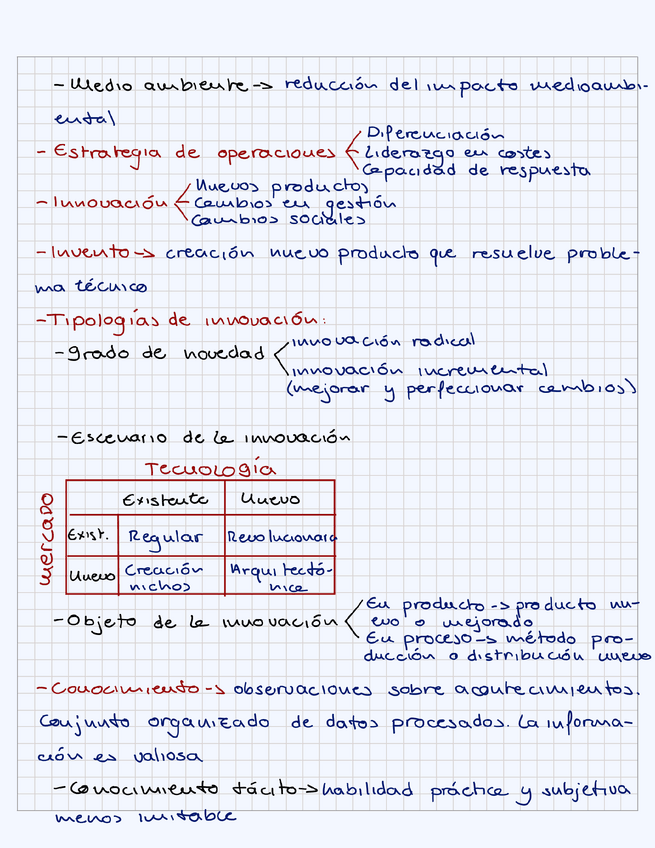 - Medio ambiente -> reducción del impacto medioambi-
ental
- Estrategia de operaciones < Diferenciación
Liderazgo en costes
Capacidad de respuesta
- Innovación < Nuevos productos
Cambios en gestión
Cambios sociales
- Invento -> creación nuevo producto que resuelve proble-
ma técnico
- Tipologías de innovación:
- grado de novedad < innovación radical
innovación incremental
(mejorar y perfeccionar cambios)
- Escenario de la innovación
Tecnología
mercado
Existente Nuevo
Exist. Regular Revolucionaria
Nuevo Creación nichos Arquitectó-
nica
- Objeto de la innovación < En producto -> producto nu-
evo o mejorado
En proceso -> método pro-
ducción o distribución nuevo
- Conocimiento -> observaciones sobre acontecimientos.
Conjunto organizado de datos procesados. La informa-
ción es valiosa
- Conocimiento tácito -> habilidad práctica y subjetiva
menos imitable